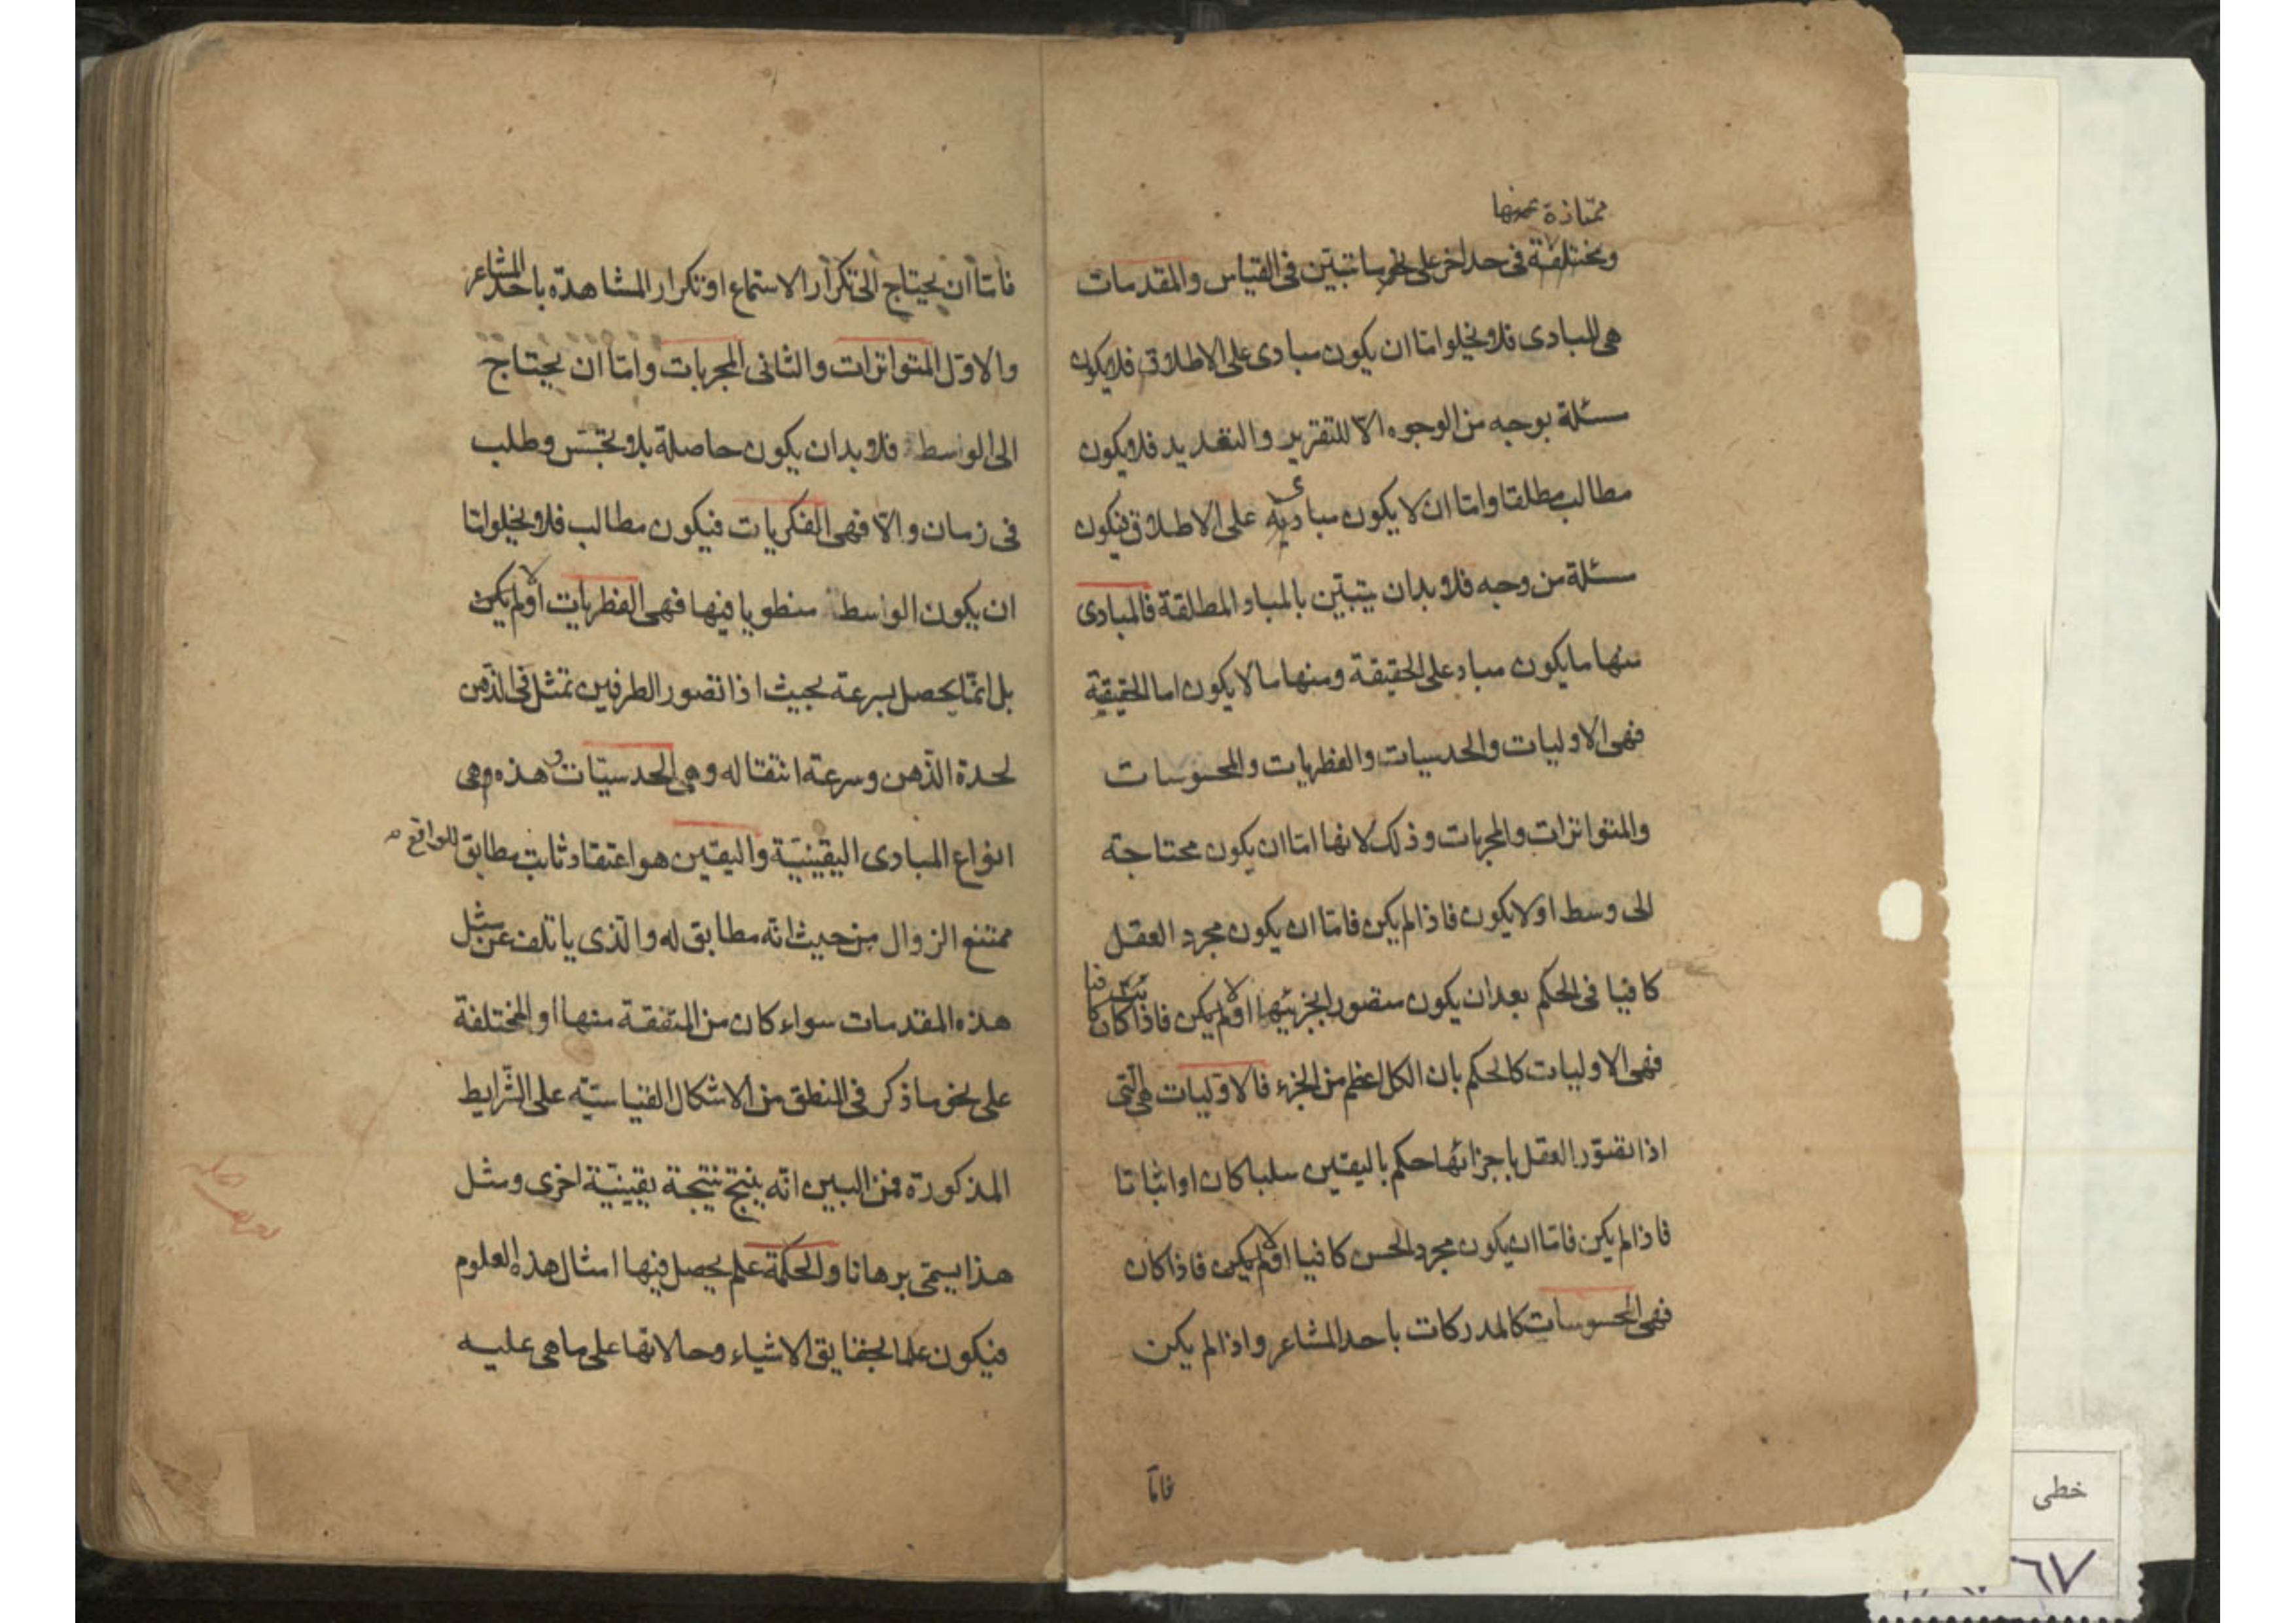 ممتازة عنها
ومختلفة فى حد اخر على نحو ما تبين فى القياس والمقدمات
هى المبادى فلا يخلو امّا ان يكون مبادى على الاطلاق فلا يكون
مسئلة بوجه من الوجوه الا للتقرير والتعديد فلا يكون
مطالب مطلقا وامّا ان لا يكون مبادى على الاطلاق فيكون
مسئلة من وجه فلا بد ان يتبيّن بالمباد المطلقة فالمبادى
منها ما يكون مباد على الحقيقة ومنها ما لا يكون اما الحقيقية
فهى الاوليات والحدسيات والفطريات والمحسوسات
والمتواترات والمجربات وذلك لانها امّا ان يكون محتاجة
الى وسط او لا يكون فاذا لم يكن فامّا ان يكون مجرد العقل
كافيا فى الحكم بعد ان يكون متصورا بجزئيها او لا يكن فاذا كان كافيا
فهى الاوليات كالحكم بان الكل اعظم من الجزء فالاوّليات هى الّتى
اذا تصوّر العقل باجزائها حكم باليقين سلبا كان او اثباتا
فاذا لم يكن فامّا ان يكون مجرد الحس كافيا او لا يكن فاذا كان
فهى المحسوسات كالمدركات باحد المشاعر واذا لم يكن
فامّا
فامّا ان يحتاج الى تكرار الاستماع او تكرار المشاهدة باحد المشاعر
والاوّل المتواترات والثانى المجربات وامّا ان يحتاج
الى الواسط فلا بد ان يكون حاصلة بلا تجسّس وطلب
فى زمان والّا فهى الفكريات فيكون مطالب فلا يخلو امّا
ان يكون الواسط منطويا فيها فهى الفطريات او لا يكن
بل انّما يحصل بسرعة بحيث اذا تصور الطرفين تمثل فى الذّهن
لحدة الذّهن وسرعة انتقاله وهى الحدسيّات وهذه هى
انواع المبادى اليقينيّة واليقين هو اعتقاد ثابت مطابق للواقع
ممتنع الزوال من حيث انّه مطابق له والّذى يأتلف عن مثل
هذه المقدمات سواء كان من المتّفقة منها او المختلفة
على نحو ما ذكر فى المنطق من الاشكال القياسيّة على الشّرايط
المذكورة فمن البين انّه ينتج نتيجة يقينيّة اخرى ومثل
هذا يسمّى برهانا والحكمة علم يحصل فيها امثال هذه العلوم
فيكون علما بحقايق الاشياء وحالاتها على ما هى عليه
خطى